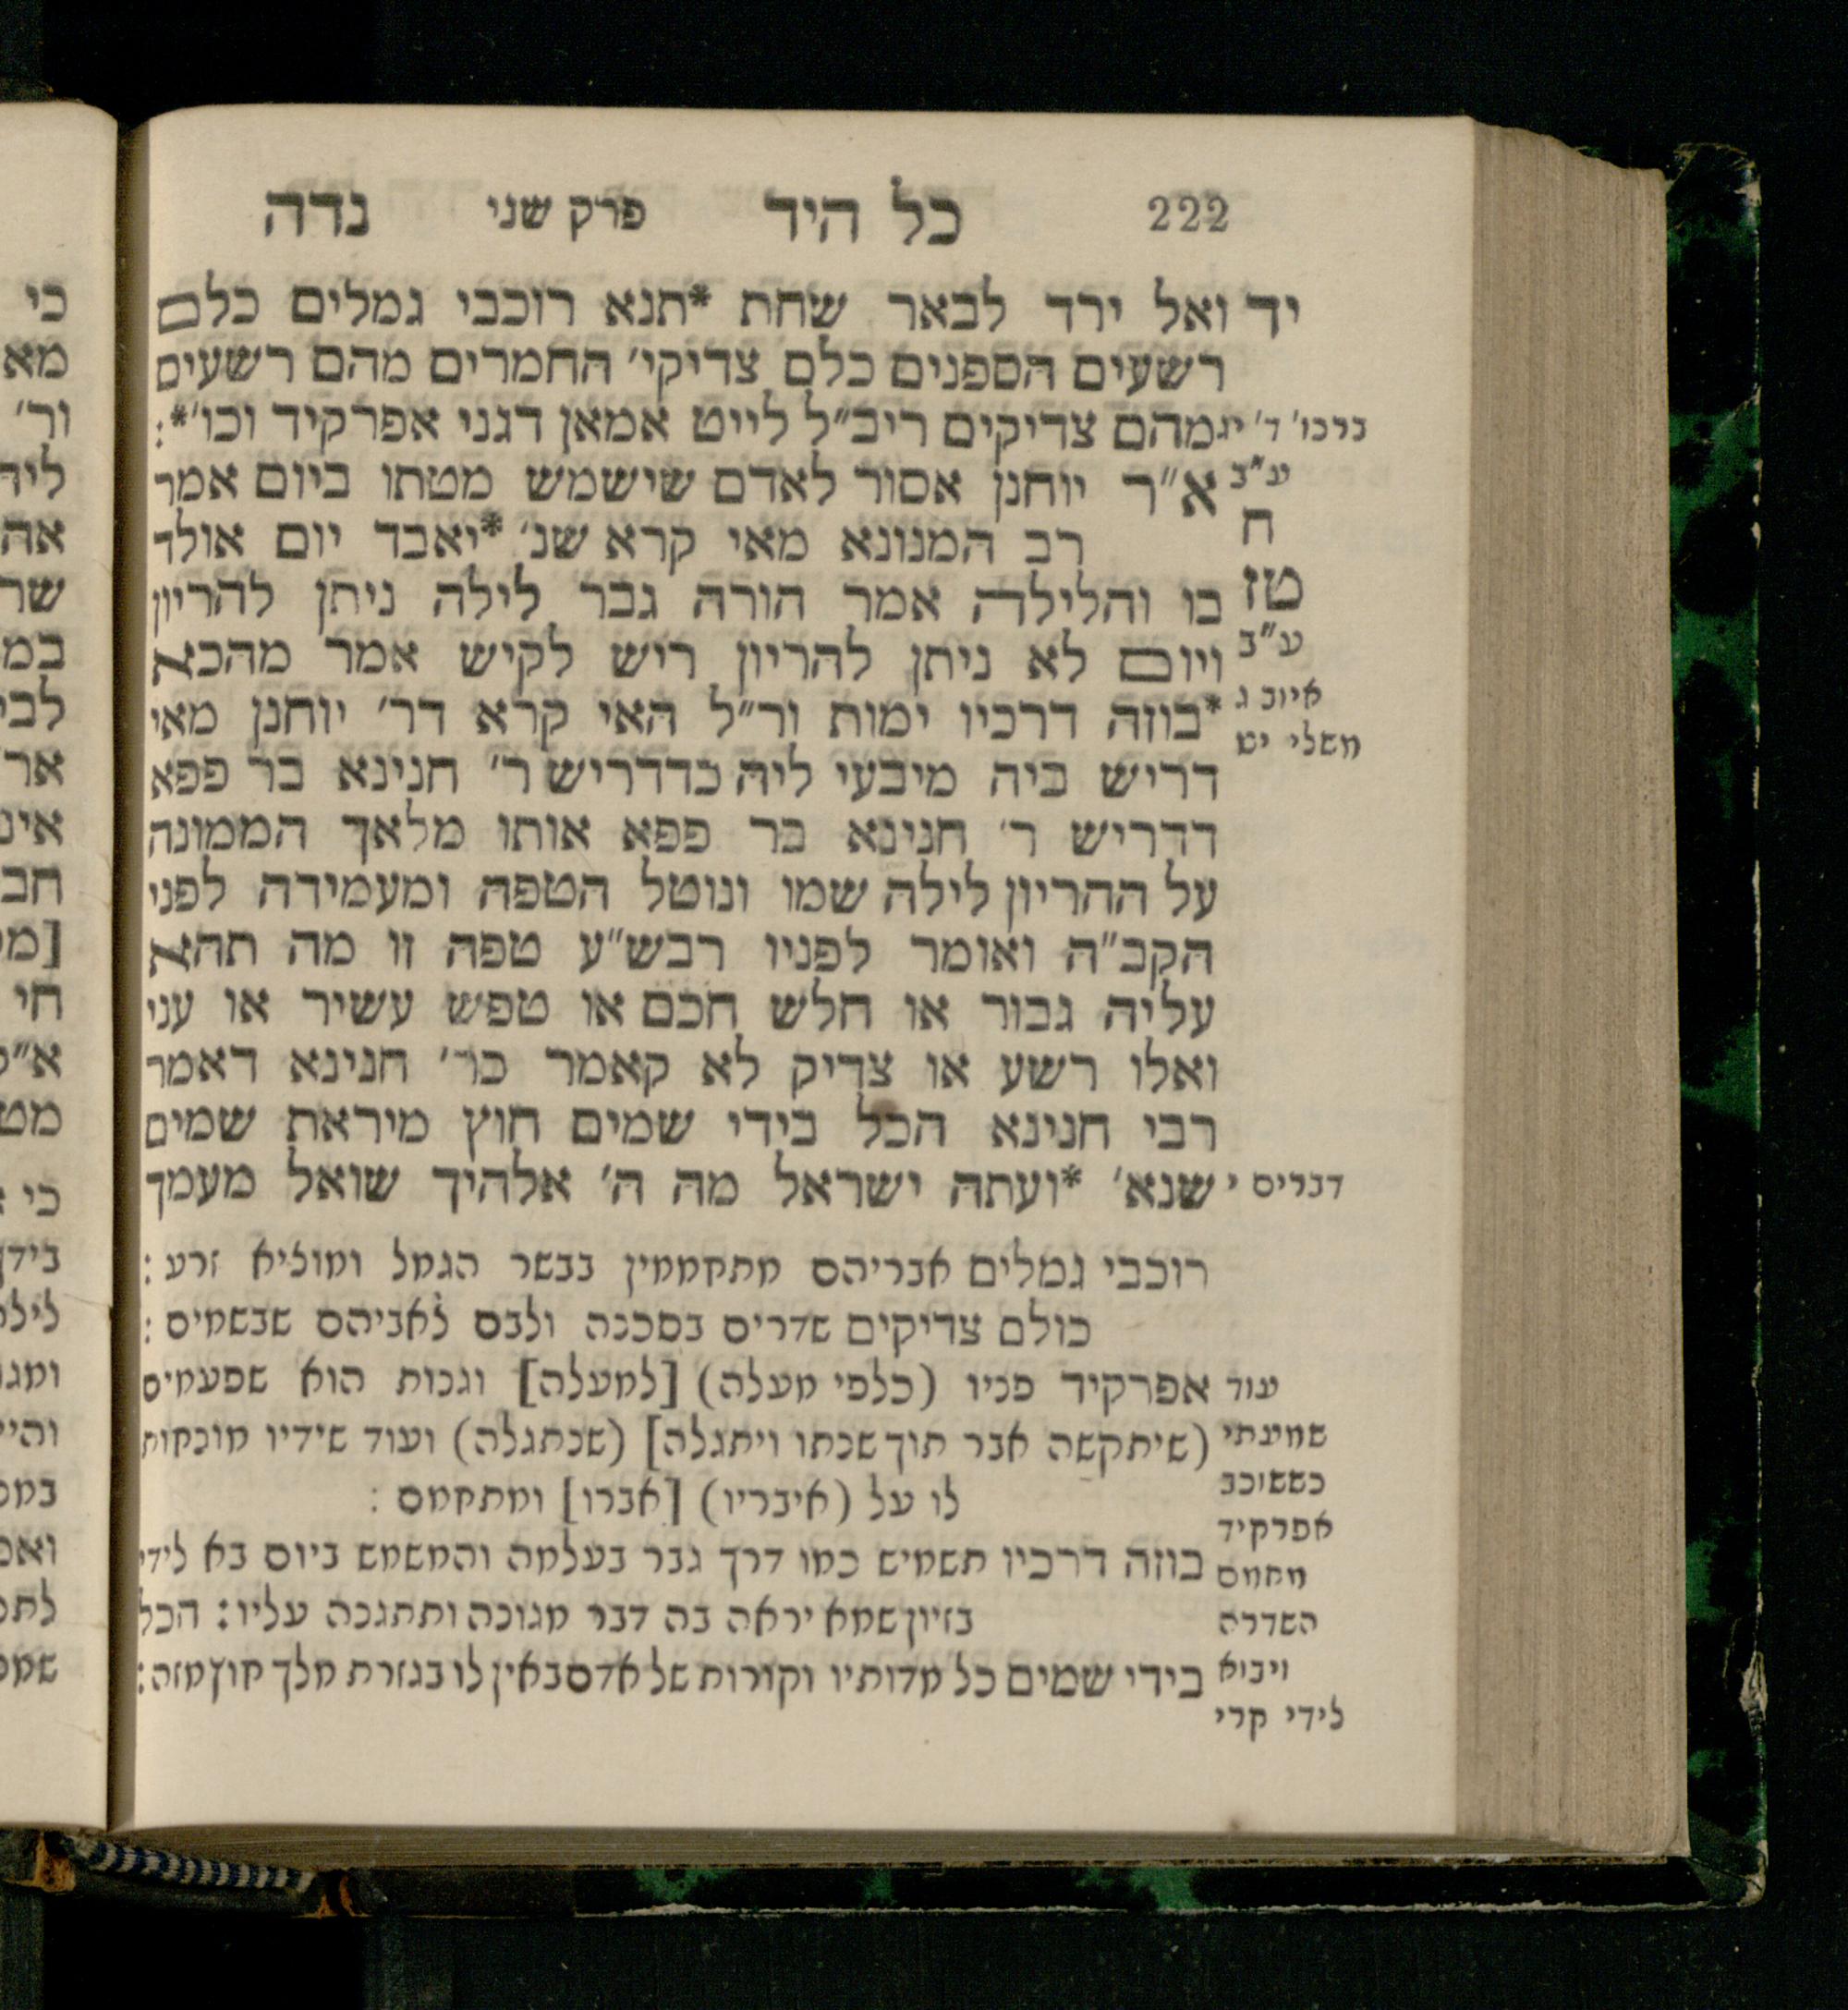 222 כל היד פרק שני נדה
יד ואל ירד לבאר שחת *תנא רוכבי גמלים כלם
רשעים הספנים כלם צדיקי׳ החמרים מהם רשעים
ברכו׳ ד׳ יג מהם צדיקים ריב״ל לייט אמאן דגני אפרקיד וכו׳*:
ע״ב א״ר יוחנן אסור לאדם שישמש מטתו ביום אמר
ח רב המנונא מאי קרא שנ׳ *יאבד יום אולד
טז בו והלילה אמר הורה גבר לילה ניתן להריון
ע״ב ויום לא ניתן להריון ריש לקיש אמר מהכא
איוב ג *בוזה דרכיו ימות ור״ל האי קרא דר׳ יוחנן מאי
משלי יט
דריש ביה מיבעי ליה כדדריש ר׳ חנינא בר פפא
דדריש ר׳ חנינא בר פפא אותו מלאך הממונה
על ההריון לילה שמו ונוטל הטפה ומעמידה לפני
הקב״ה ואומר לפניו רבש״ע טפה זו מה תהא
עליה גבור או חלש חכם או טפש עשיר או עני
ואלו רשע או צדיק לא קאמר כר׳ חנינא דאמר
רבי חנינא הכל בידי שמים חוץ מיראת שמים
דברים י שנא׳ *ועתה ישראל מה ה׳ אלהיך שואל מעמך
רוכבי גמלים אבריהם מתחממין בבשר הגמל ומוציא זרע:
כולם צדיקים שדרים בסכנה ולבם לאביהם שבשמים:
עוד אפרקיד פניו (כלפי מעלה) [למעלה] וגנות הוא שפעמים
שמעתי (שיתקשה אבר תוך שנתו ויתגלה] (שנתגלה) ועוד שידיו מונחות
כששוכב
לו על (איבריו) [אברו] ומתחמם:
אפרקיד
בוזה דרכיו תשמיש כמו דרך גבר בעלמה והמשמש ביום בא לידי
מחמם
השדרה בזיון שמא יראה בה דבר מגונה ותתגנה עליו: הכל
ויבוא בידי שמים כל מדותיו וקורות של אדם באין לו בגזרת מלך חוץ מזה:
לידי קרי